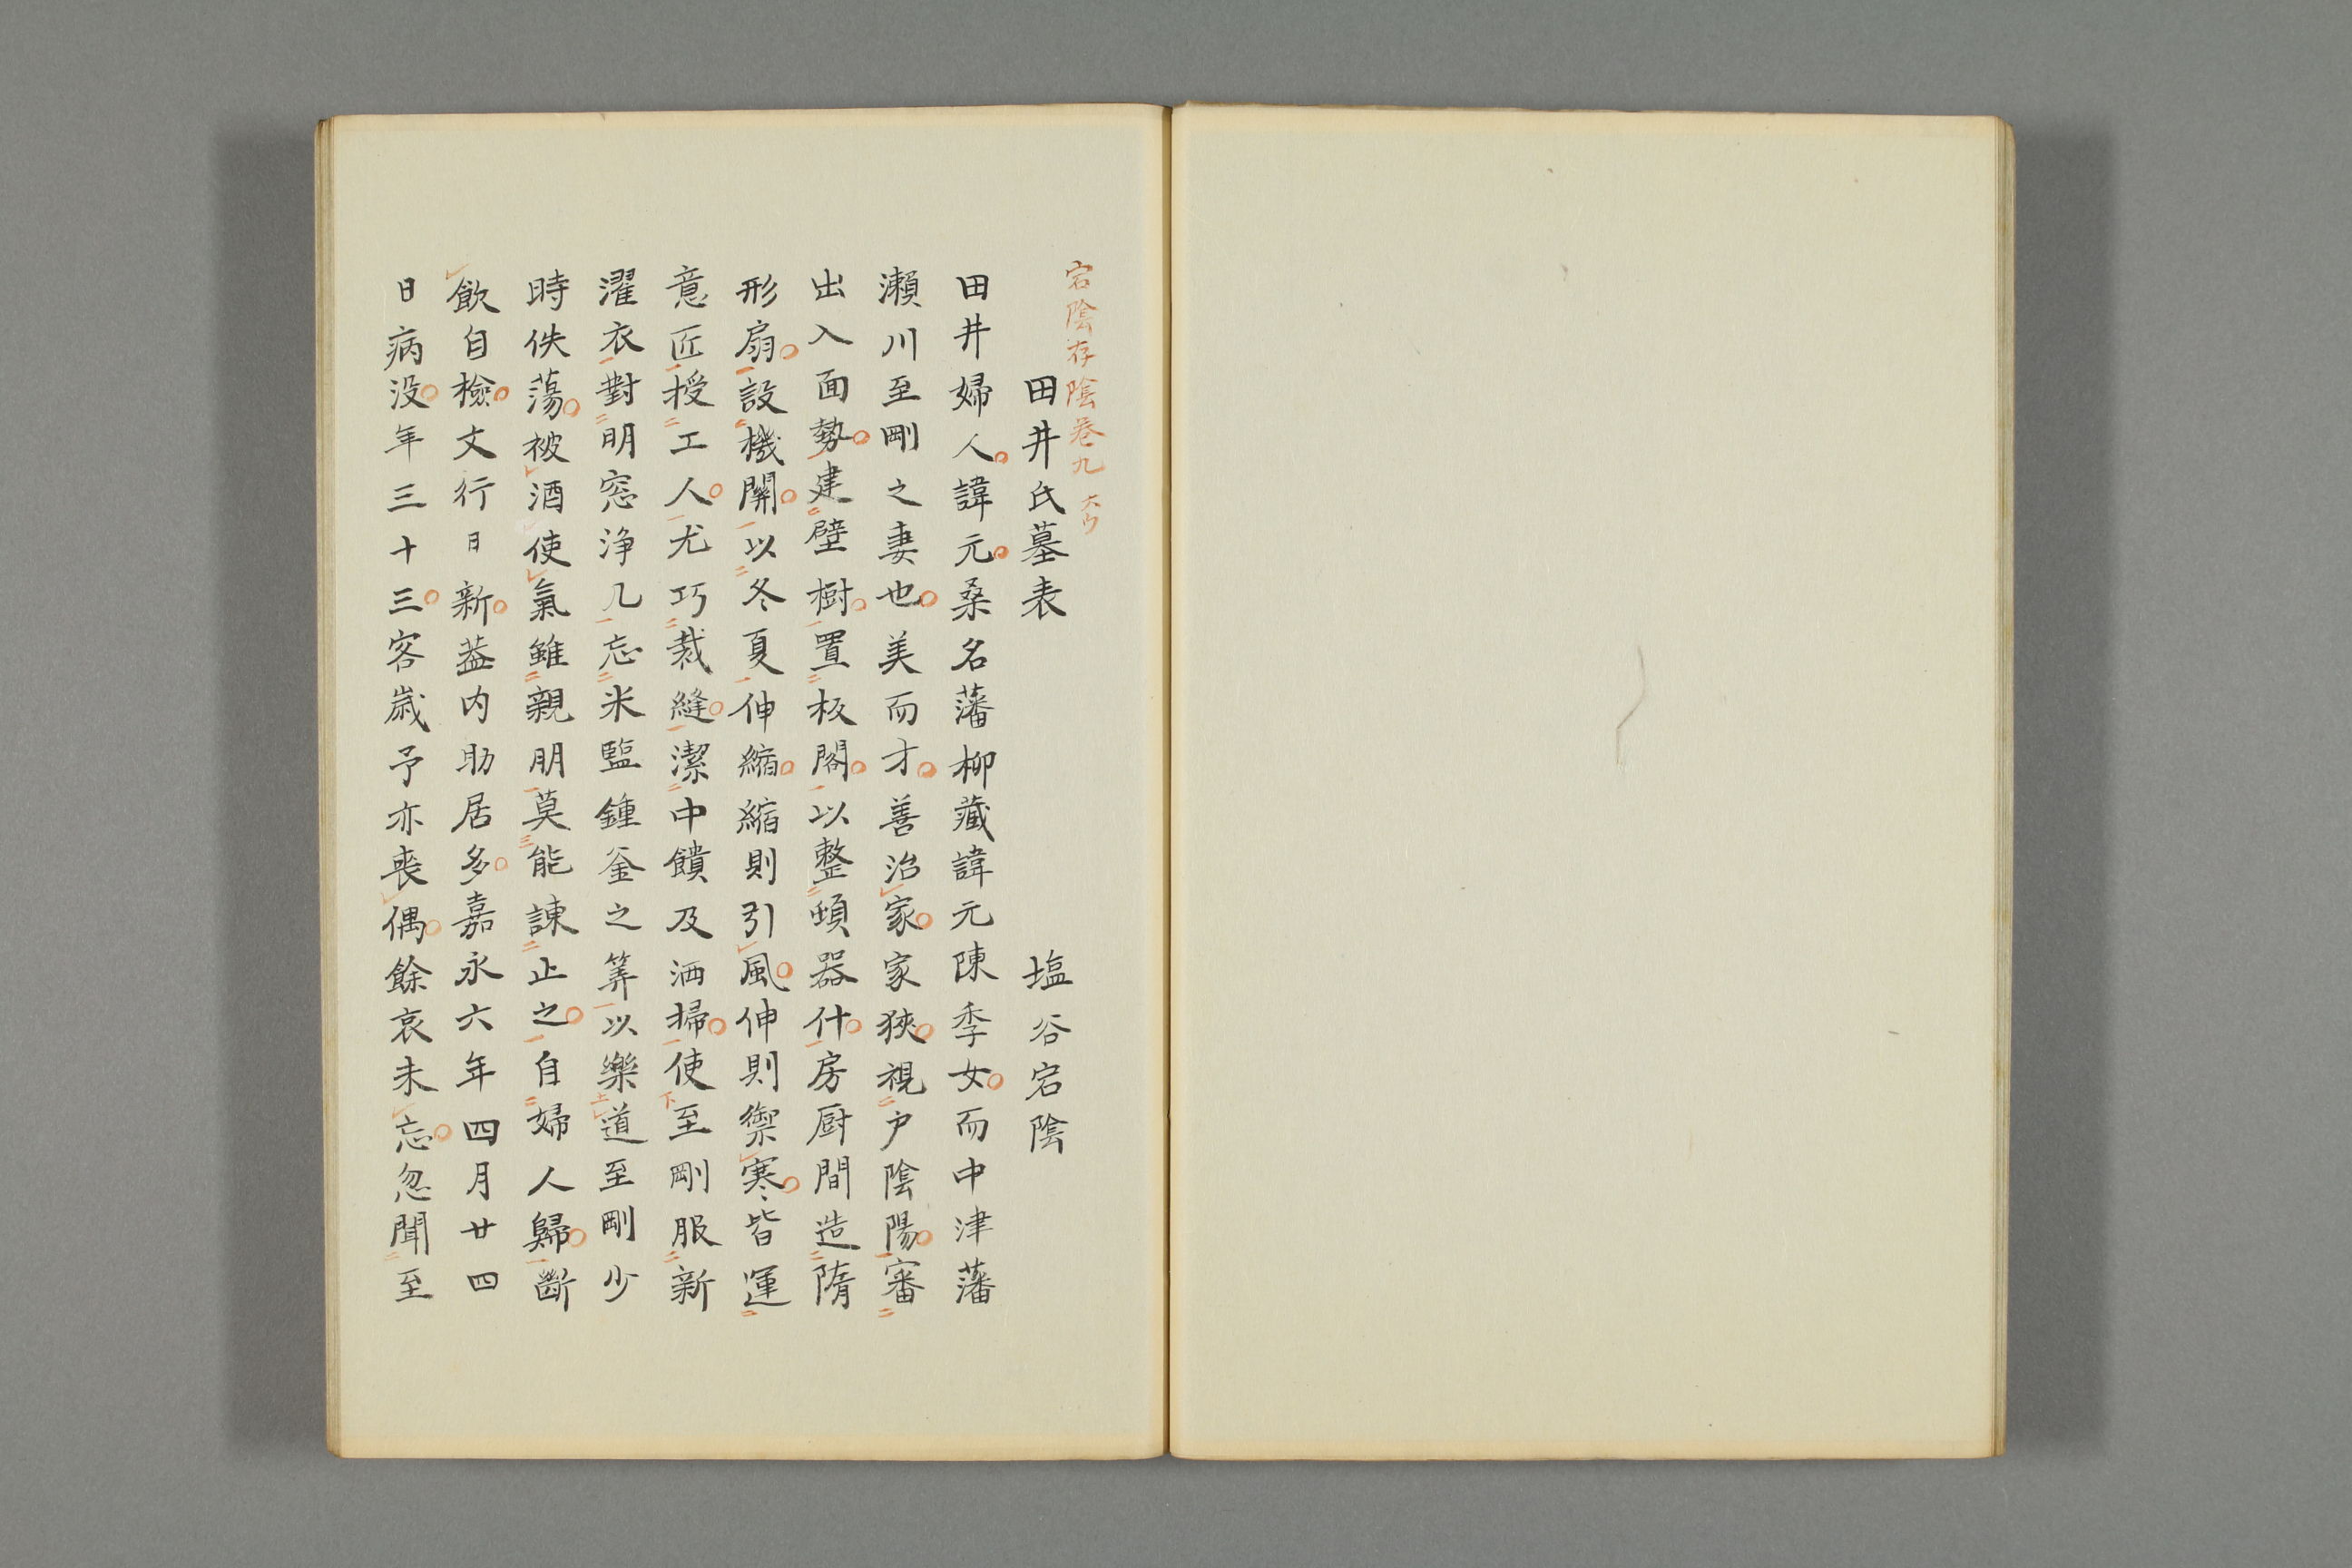 宕陰存陰巻九
田井氏墓表 塩谷宕陰
田井婦人諱元桑名藩柳藏諱元陳季女而中津藩
瀬川至剛之妻也美而才善治家家狹視戸陰陽審
出入面勢建壁樹置板閣以整頓器什房厨間造隋
形扇設機關以冬夏伸縮縮則引風伸則禦寒皆運
意匠授工人尤巧裁縫潔中饋及洒掃使至剛服新
濯衣對明窓浄几忘米監鍾釜之筭以樂道至剛少
時佚蕩被酒使氣雖親朋莫能諌止之自婦人歸斷
飲自檢文行日新葢内助居多嘉永六年四月廿四
日病没年三十三客歳予亦喪偶餘哀未忘忽聞至